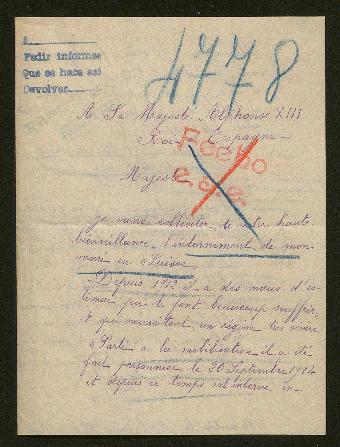 1
Pedir informes
Que se hace asi
Devolver
4778
A Sa Majesté Alphonse XIII
Roi Espagne
Majesté
je viens solliciter de votre haute
bienveillance l'internement de mon
mari en Suisse
Depuis 1912 il a des maux d'es-
tomac qui le font beaucoup souffrir
et qui nécessitent un régime très sévère
Parti à la mobilisation il a été
fait prisonnier le 20 Septembre 1914
et depuis ce temps est interné en